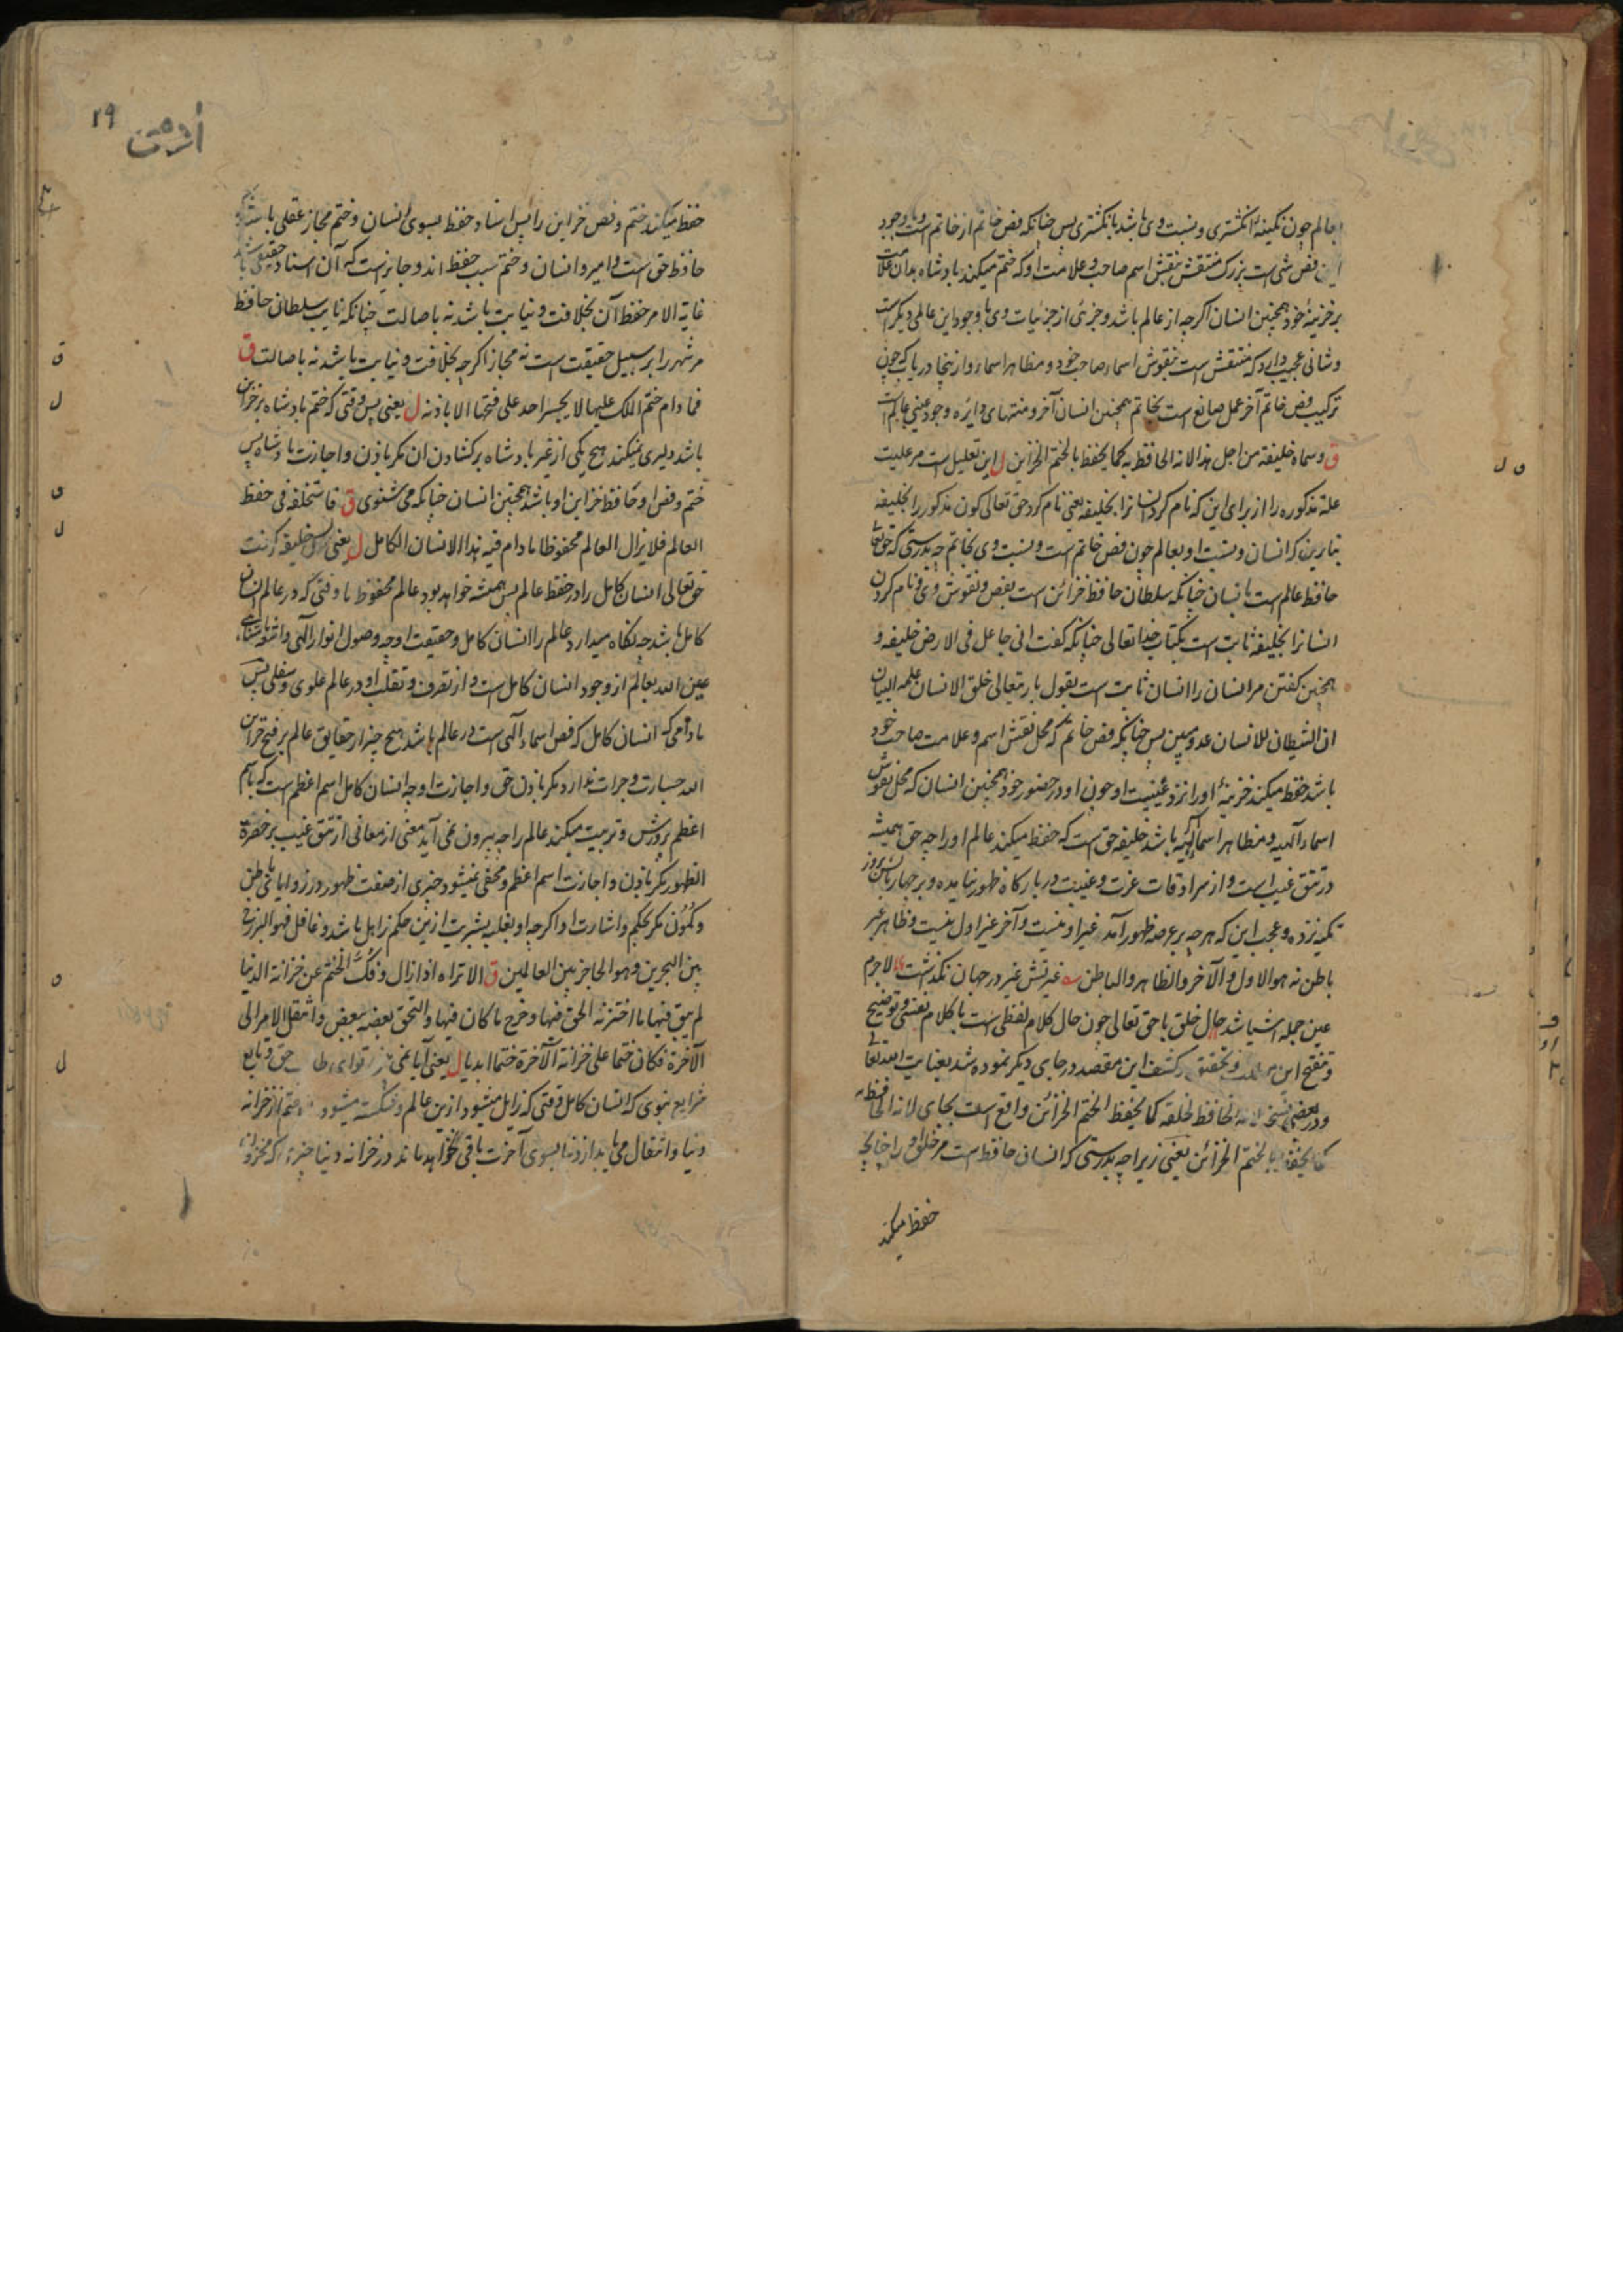 بعالم چون نگینهٔ انگشتری و نسبت وی باشد بانگشتری پس چنانکه فص خاتم از خاتم است و وجود
این فص شی است بزرگ منتقش بنقش اسم صاحب و علامت او که ختم میکند بادشاه بدان علامت
بر خزینهٔ خود همچنین انسان اگرچه از عالم باشد و جزئی از جزئیات وی با وجود این عالمی دیگر است
و شانی عجیب دارد که منتقش است بنقوش اسماء صاحب خود و مظاهر اسماء و ازینجا دریاب که چون
ترکیب فص خاتم آخر عمل صانع است بخاتم همچنین انسان آخر و منتهای دایره وجود عینی عالم است
ق وسماه خلیفة من اجل هذا لانه الحافظ به کما یحفظ بالختم الخزاین ل این تعلیل است مر علیت
علة مذکوره را از برای این که نام کرد انسانرا بخلیفه یعنی نام کرد حق تعالی کون مذکور را بخلیفه
بنابرین که انسان و نسبت او بعالم چون فص خاتم است و نسبت وی بخاتم چه بدرستی که حق تعالی
حافظ عالم است بانسان چنانکه سلطان حافظ خزائن است بفص و نقوش وی و نام کردن
انسانرا بخلیفه ثابت است بکتاب خدا تعالی چنانکه گفت انی جاعل فی الارض خلیفه و
همچنین گفتن مر انسان را انسان ثابت است بقول باریتعالی خلق الانسان علمه البیان
ان الشیطان للانسان عدو مبین پس چنانکه فص خاتم که محل نقش اسم و علامت صاحب خود
باشد حفظ میکند خزینهٔ او را نزد غیبت او چون او در حضور خود همچنین انسان که محل نقوش
اسماء الهیه و مظاهر اسماء الهیه باشد خلیفه حق است که حفظ میکند عالم او را چه حق همیشه
در تتق غیب است و از سرادقات عزت و غیبت در بارگاه ظهور نیامده و بر چهار بالش بروز
تکیه نزده و عجب این که هرچه بر عرصه ظهور آمد غیر او نیست و آخر غیر اول نیست و ظاهر غیر
باطن نه هو الاول و الآخر والظاهر والباطن غیرتش غیر در جهان نگذشت لاجرم
عین جمله اشیا شد حال خلق با حق تعالی چون حال کلام لفظی است با کلام نفسی و توضیح
و تنقیح این و تحقیق و کشف این مقصد در جای دیگر نموده شد بعنایت الله تعالی
و در بعض نسخ لانه الحافظ لخلقه کما یحفظ الختم الخزائن واقع است بجای لانه الحافظ به
کما یحفظ بالختم الخزائن یعنی زیرا چه بدرستی که انسان حافظ است مر خلق او را چنانچه
حفظ میکند
۱۹
حفظ میکند ختم و فص خزاین را پس اسناد حفظ بسوی انسان و ختم مجاز عقلی باشد
حافظ حق است و امیر و انسان و ختم سبب حفظ اند و جایز است که آن اسناد حقیقی باشد
غایة الامر حفظ آن بخلافت و نیابت باشد نه باصالت چنانکه نایب سلطان حافظ
مر شهر را بر سبیل حقیقت است نه مجاز اگرچه بخلافت و نیابت باشد نه باصالت ق
فما دام ختم الملک علیها لا یجسر احد علی فتحها الا باذنه ل یعنی پس وقتی که ختم بادشاه بر خزاین
باشد دلیری نمیکند هیچ یکی از غیر بادشاه بر کشادن آن مگر باذن و اجازت بادشاه پس
ختم و فص او حافظ خزاین او باشد همچنین انسان چنانکه می شنوی ق فاستخلفه فی حفظ
العالم فلا یزال العالم محفوظا ما دام فیه هذا الانسان الکامل ل یعنی پس خلیفه گرفت
حق تعالی انسان کامل را در حفظ عالم پس همیشه خواهد بود عالم محفوظ تا وقتی که در عالم انسان
کامل باشد چه نگاه میدارد عالم را انسان کامل و حقیقت او چه وصول انوار الهی و
عین الله بعالم از وجود انسان کامل است و از تصرف و تقلب او در عالم علوی و سفلی پس
مادامی که انسان کامل که فص اسماء الهی است در عالم باشد هیچ چیز از حقایق عالم بر فتح خزاین
الله جسارت و جرات ندارد مگر باذن حق و اجازت او چه انسان کامل اسم اعظم است که باسم
اعظم پرورش و تربیت میکند عالم را چه بیرون نمی آید معنی از معانی از تتق غیب بر حضرت
الظهور مگر باذن و اجازت اسم اعظم و مخفی نمیشود چیزی از صفت ظهور در زوایا باطن
و کُمُون مگر بحکم و اشارت او اگرچه او بغلبه بشریت ازین حکم ذاهل باشد و غافل فهو البرزخ
بین البحرین وهو الحاجز بین العالمین ق الا تراه اذا زال و فُکَّ الختم عن خزانة الدنیا
لم یبق فیها ما اختزنه الحق فیها و خرج ما کان فیها و التحق بعضه ببعض و انتقل الامر الی
الآخرة فکان ختما علی خزانة الآخرة ختما ابدیا ل یعنی آیا نمی حق و تابع
شرایع نبوی که انسان کامل وقتی که زایل میشود ازین عالم و شکسته میشود ختم از خزانه
دنیا و انتقال می یابد از دنیا بسوی آخرت باقی نخواهد ماند در خزانه دنیا چیزی که مخزون